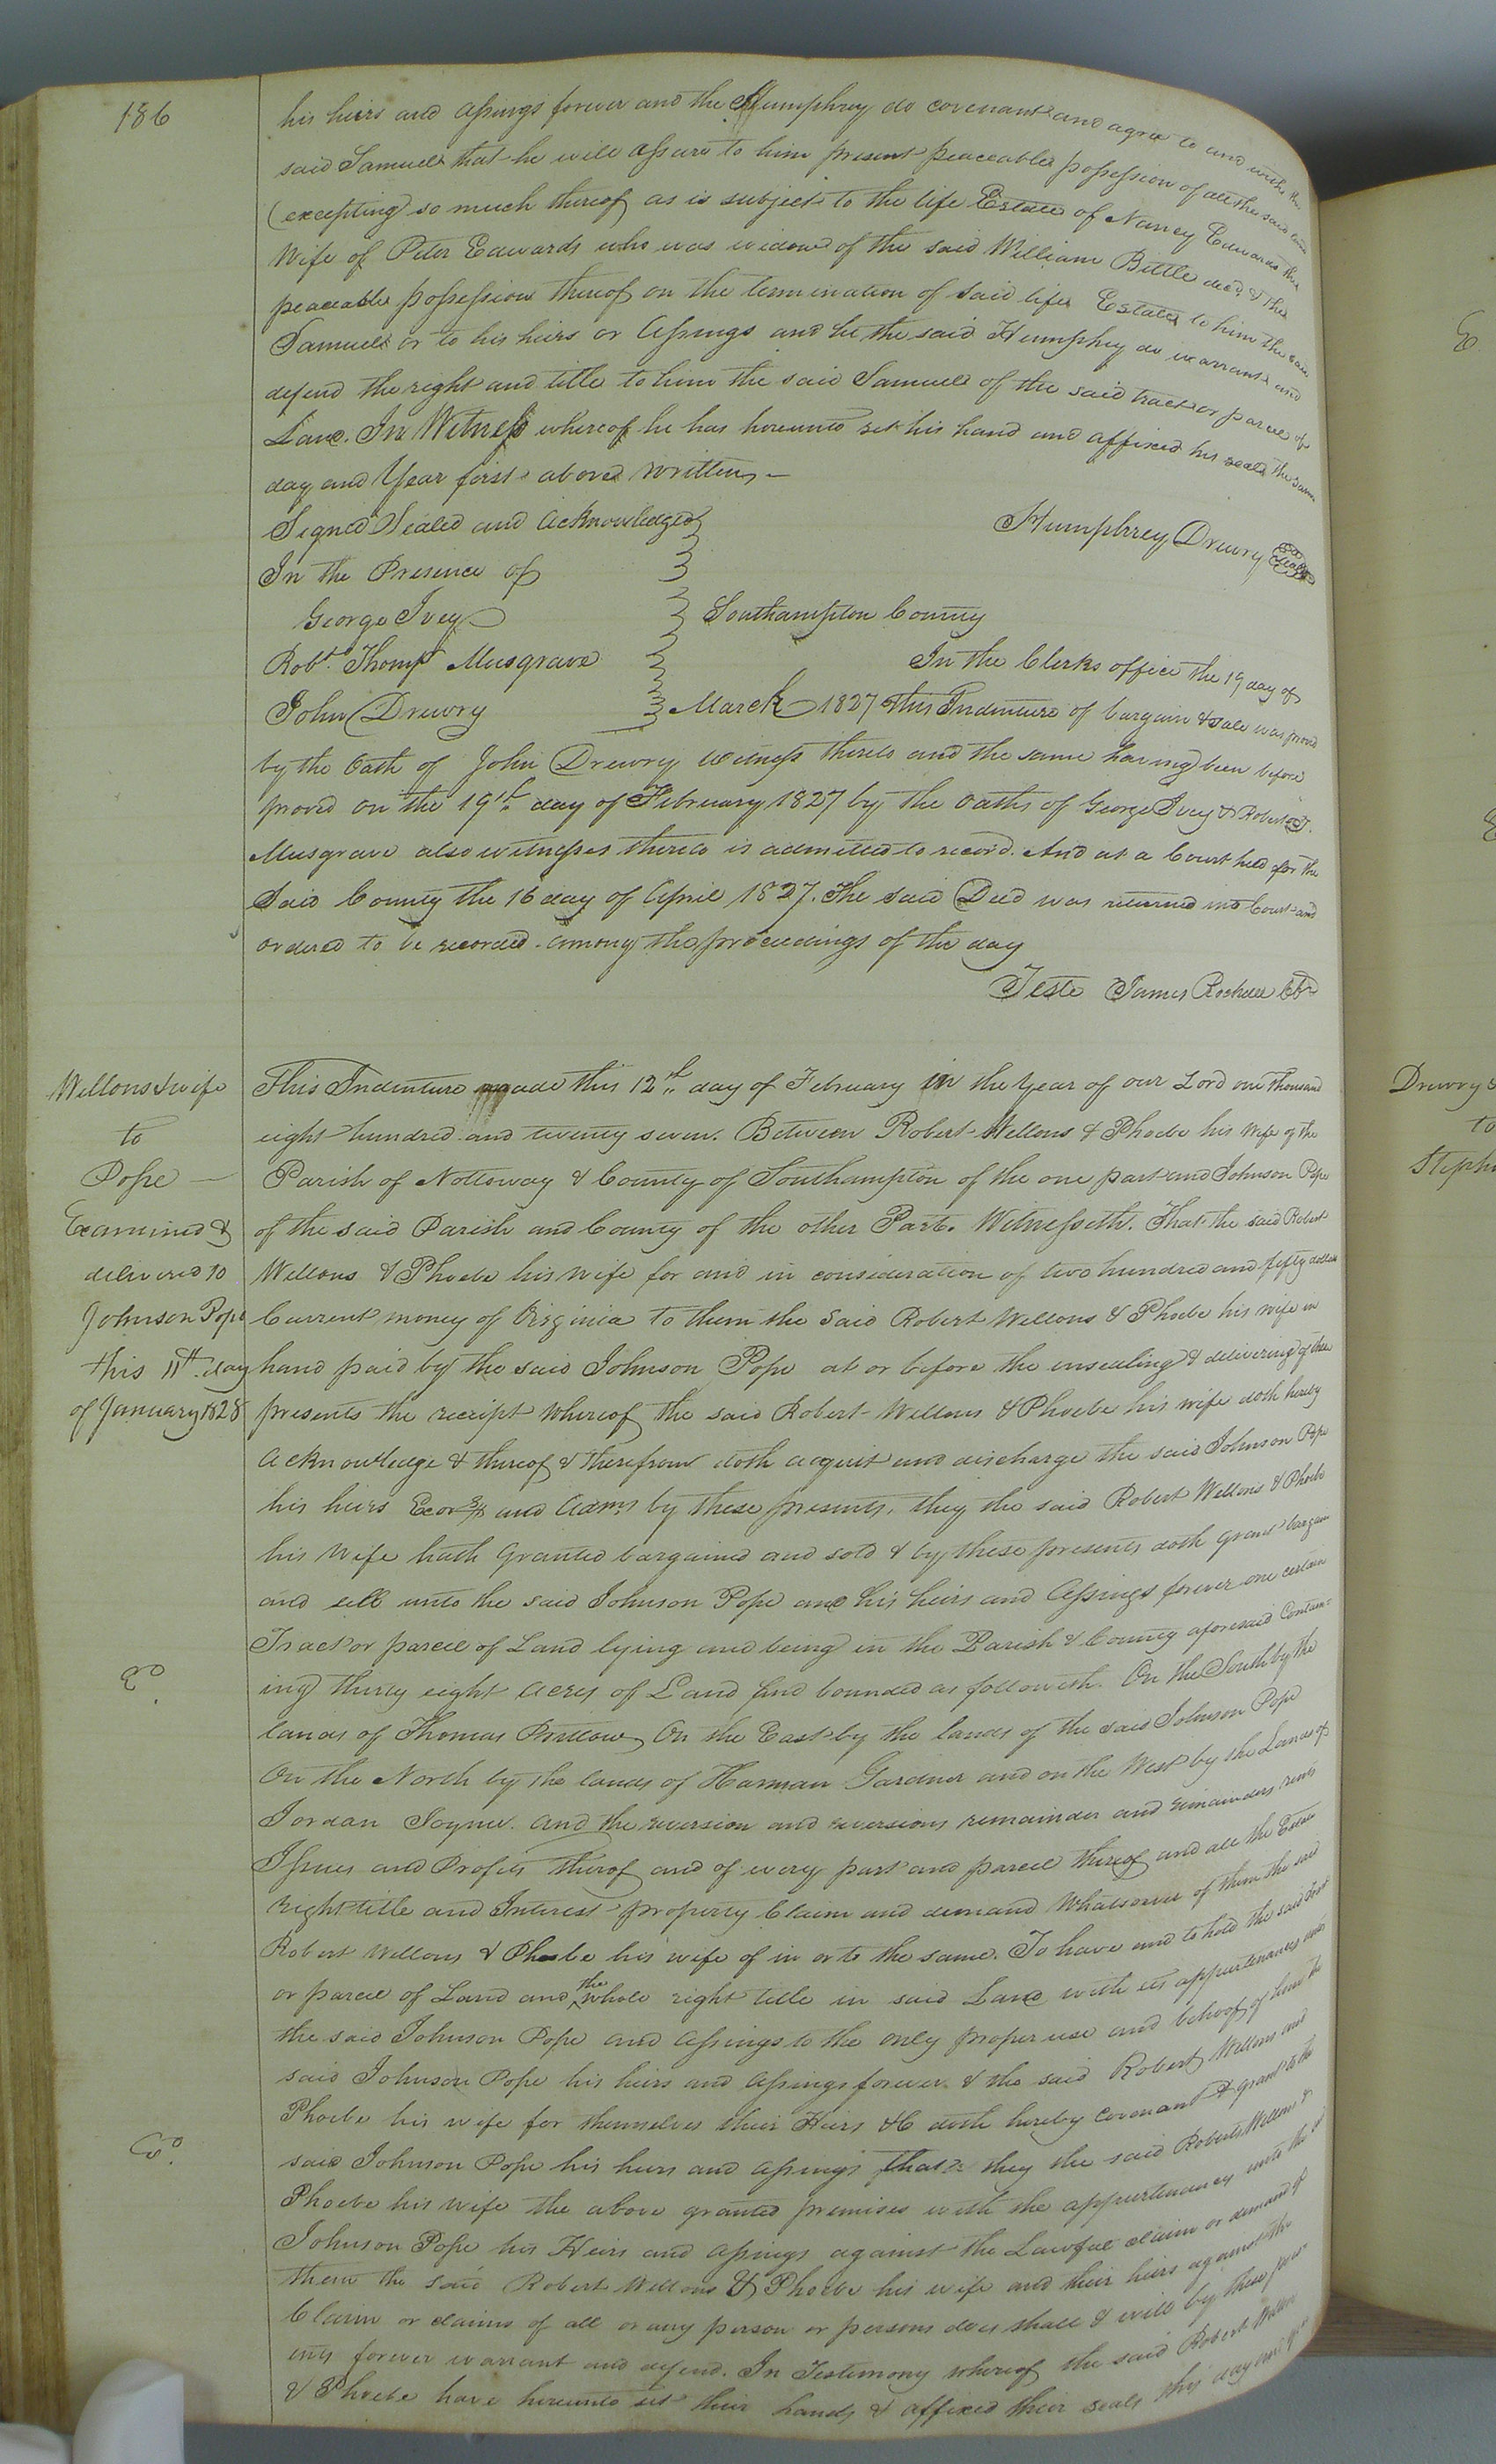 186
his heirs and assings forever and the Humphrey do covenant and agree to and with the
said Samuel that he will assure to him present peaceable possession of all the said land
(excepting) so much thereof as is subject to the life Estate of Nancy Edwards the
Wife of Peter Edwards who was widow of the said William Bittle decd & the
peaceable possession thereof on the termination of said life Estate to him the said
Samuel or to his heirs or Assings and he the said Humphrey do warrant and
defend the right and title to him the said Samuel of the said tract or parcel of
Land. In Witness whereof he has hereunto set his hand and affixed his seal the same
day and Year first above written,—
Signed Sealed and acknowledged
In the Presence of
George Ivey
Robt. Thomps Musgrave
John Drewry
Humphrey Drewry Seal
Southampton County
In the Clerks office the 19 day of
March 1827 This Indenture of bargain & sale was proved
by the Oath of John Drewry witness thereto and the same having been before
proved on the 19th day of February 1827 by the oaths of George Ivey & Robert T.
Musgrave also witnesses thereto is admitted to record. And at a Court held for the
Said County the 16 day of April 1827. The said Deed was returned into Court and
ordered to be recorded among the proceedings of the day
Teste James Rochelle
Wellons & wife
to
Pope —
Examined &
delivered to
Johnson Pope
this 11th day
of January 1828
This Indenture made this 12th day of February in the Year of our Lord one thousand
eight hundred and twenty seven. Between Robert Wellons & Phoebe his Wife of the
Parish of Nottoway & County of Southampton of the one part and Johnson Pope
of the said Parish and County of the other Part. Witnesseth. That the said Robert
Wellons & Phoebe his wife for and in consideration of two hundred and fifty dollars
Current money of Virginia to them the Said Robert Wellons & Phoebe his wife in
hand paid by the said Johnson Pope at or before the ensealing & delivering of these
presents the receipt whereof the said Robert Wellons & Phoebe his wife doth hereby
acknowledge & thereof & therefrom doth acquit and discharge the said Johnson Pope
his heirs Ecors and Adms by these presents, they the said Robert Wellons & Phoebe
his Wife hath Granted bargained and sold & by these presents doth grant bargain
and sell unto the said Johnson Pope and his heirs and Assings forever one certain
Tract or parcel of Land lying and being in the Parish & County aforesaid Contain-
ing thirty eight Acres of Land and bounded as followeth. On the South by the
lands of Thomas Pretlow, On the East by the lands of the said Johnson Pope
On the North by the lands of Harman Gardner and on the West by the Lands of
Jordan Joyner. and the reversion and reversions remainder and remainders rents
Issues and Profits thereof and of every part and parcel thereof and all the Estate
right title and Interest property Claim and demand whatsoever of them the said
Robert Wellons & Phoebe his wife of in or to the same. To have and to hold the said Tract
or parcel of Land and the whole right title in said Land with its appurtenances unto
the said Johnson Pope and assings to the only proper use and behoof of him the
said Johnson Pope his heirs and assings forever & the said Robert Wellons and
Phoebe his wife for themselves their Heirs &C doth hereby covenant & grant to the
said Johnson Pope his heirs and assings that they the said Robert Wellons &
Phoebe his wife the above granted premises with the appurtenances unto the sd
Johnson Pope his Heirs and assings against the Lawful claim or demand of
them the said Robert Wellons & Phoebe his wife and their heirs against the
Claim or claims of all or any person or persons does shall & will by these pres-
ents forever warrant and defend. In Testimony whereof the said Robert Wellons
& Phoebe have hereunto set their hands & affixed their seals this day and
E
Drewry &
to
Steph